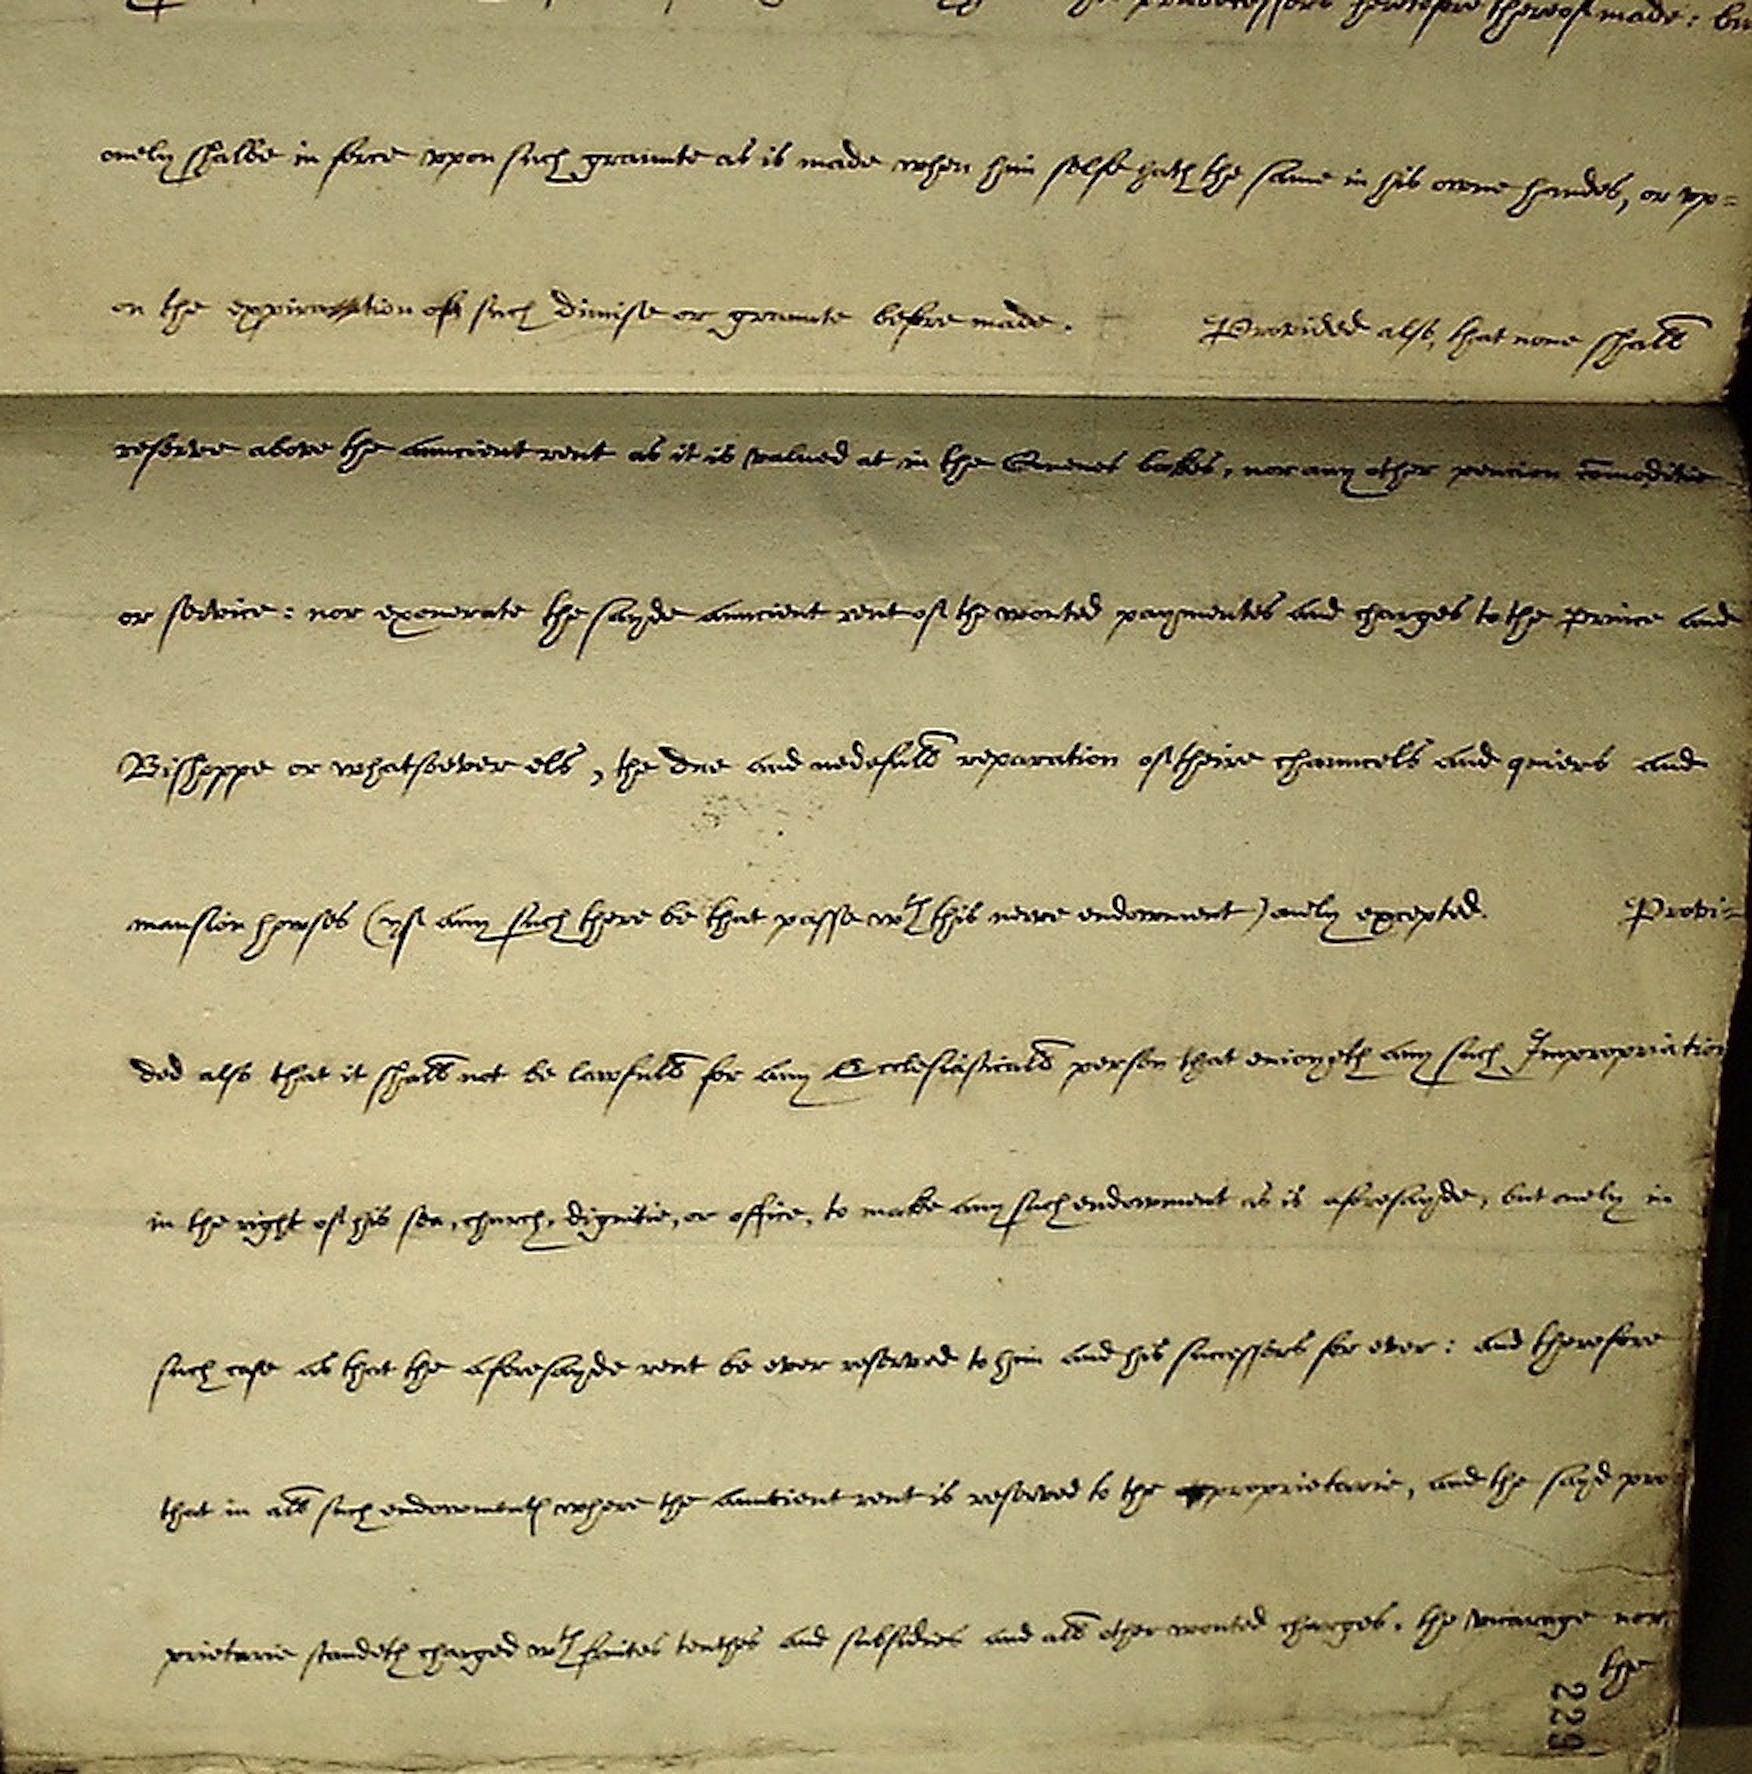 predecessors heretofore thereof made: bu
onely shalbe in force vpon such graunte as is made when him selfe hath the same in his owne handes, or vp=
on the expiration of such dimise or graunte before made. Provided also, that none shall
reserve above the auncient rent as it is valued at in the Quenes bokes, nor any other pencion comoditie
or service: nor exonerate the sayde auncient rent of the wonted paymentes and charges to the Prince and
Bishoppe or whatsoever els, the due and nedefull reparation of theire chauncels and quiers and
mansion howses (yf any such there be that passe wth this newe endowment) onely excepted. Provi=
ded also that it shall not be lawfull for any Ecclesiasticall person that enioyeth any such Impropriation
in the right of his sea, church, dignitie, or office, to make any such endowment as is aforesayde, but onely in
such case as that the aforesayde rent be ever reserved to him and his successors for ever: and therefore
that in all such endowmentes where the auntient rent is reserved to the proprietarie, and the sayd pro
prietarie standeth charged wth fruites tenthes and subsidies and all other wonted charges, the vicarage nor
the
229